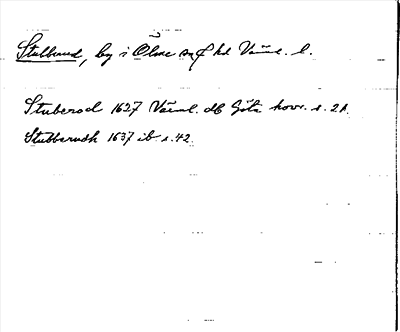 Stubbrud, by i Ölme sn o hd Värml. l.
Stuberod 1627 Värml. db Göta hovr. s. 21.
Stubberudh 1637 ib s. 42